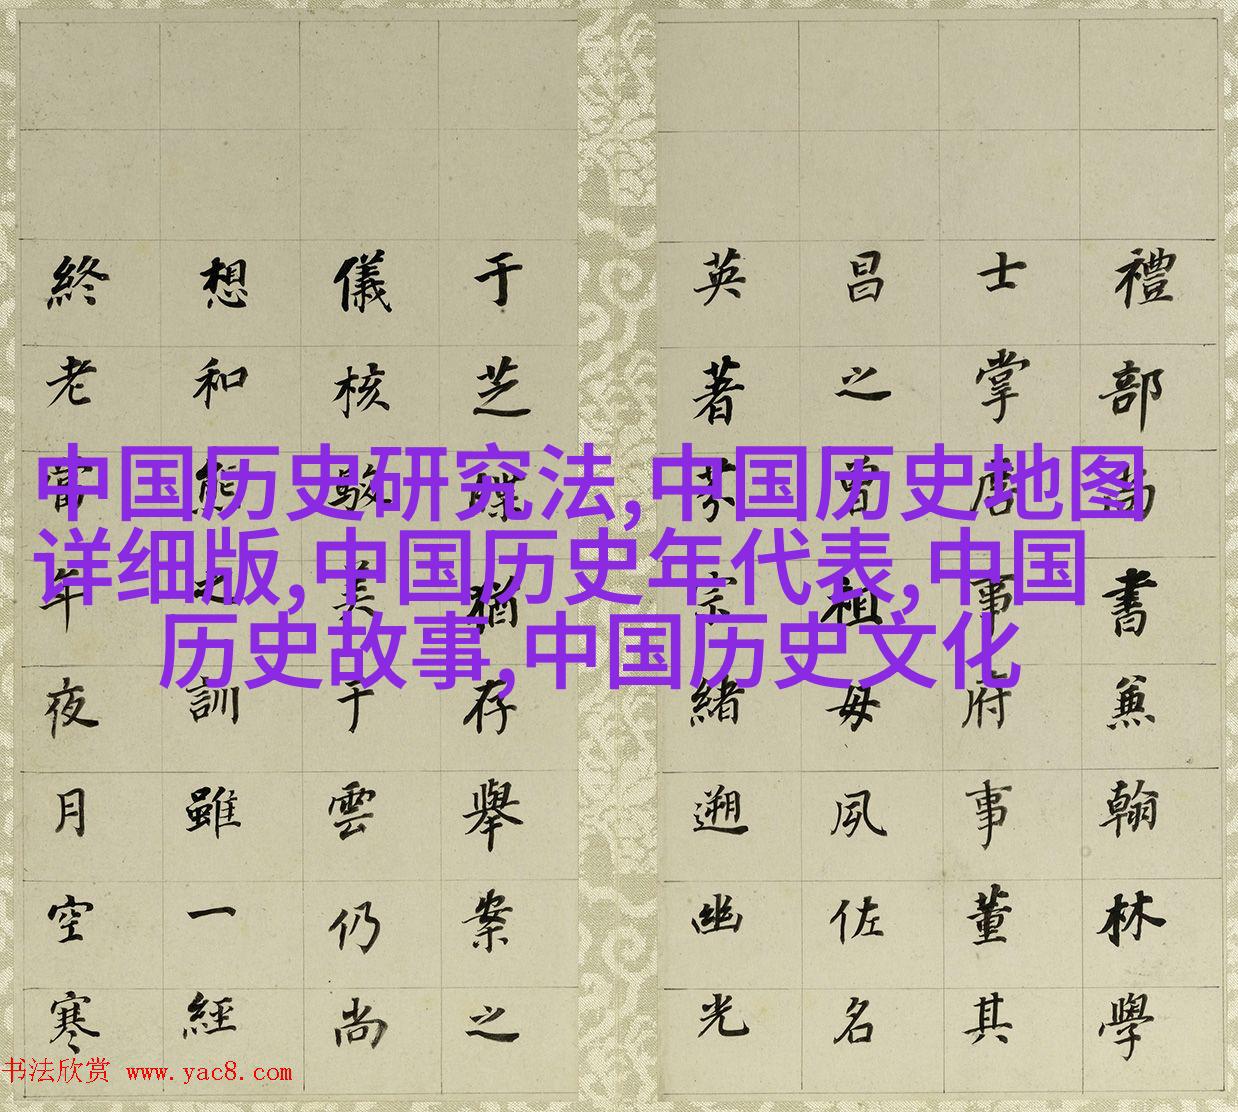 禮部尚書兼翰林學
士掌詹事府事董其
昌之曾祖母夙佐名
英著芬宗緒遡幽光
于芝猶存舉案之
儀核美于雲仍尚
想和熊之訓雖一經
終老當年夜月空寒
中国历史研究法,中国历史地图
详细版,中国历史年代表,中国
历史故事,中国历史文化
书法欣赏 www.yac8.com